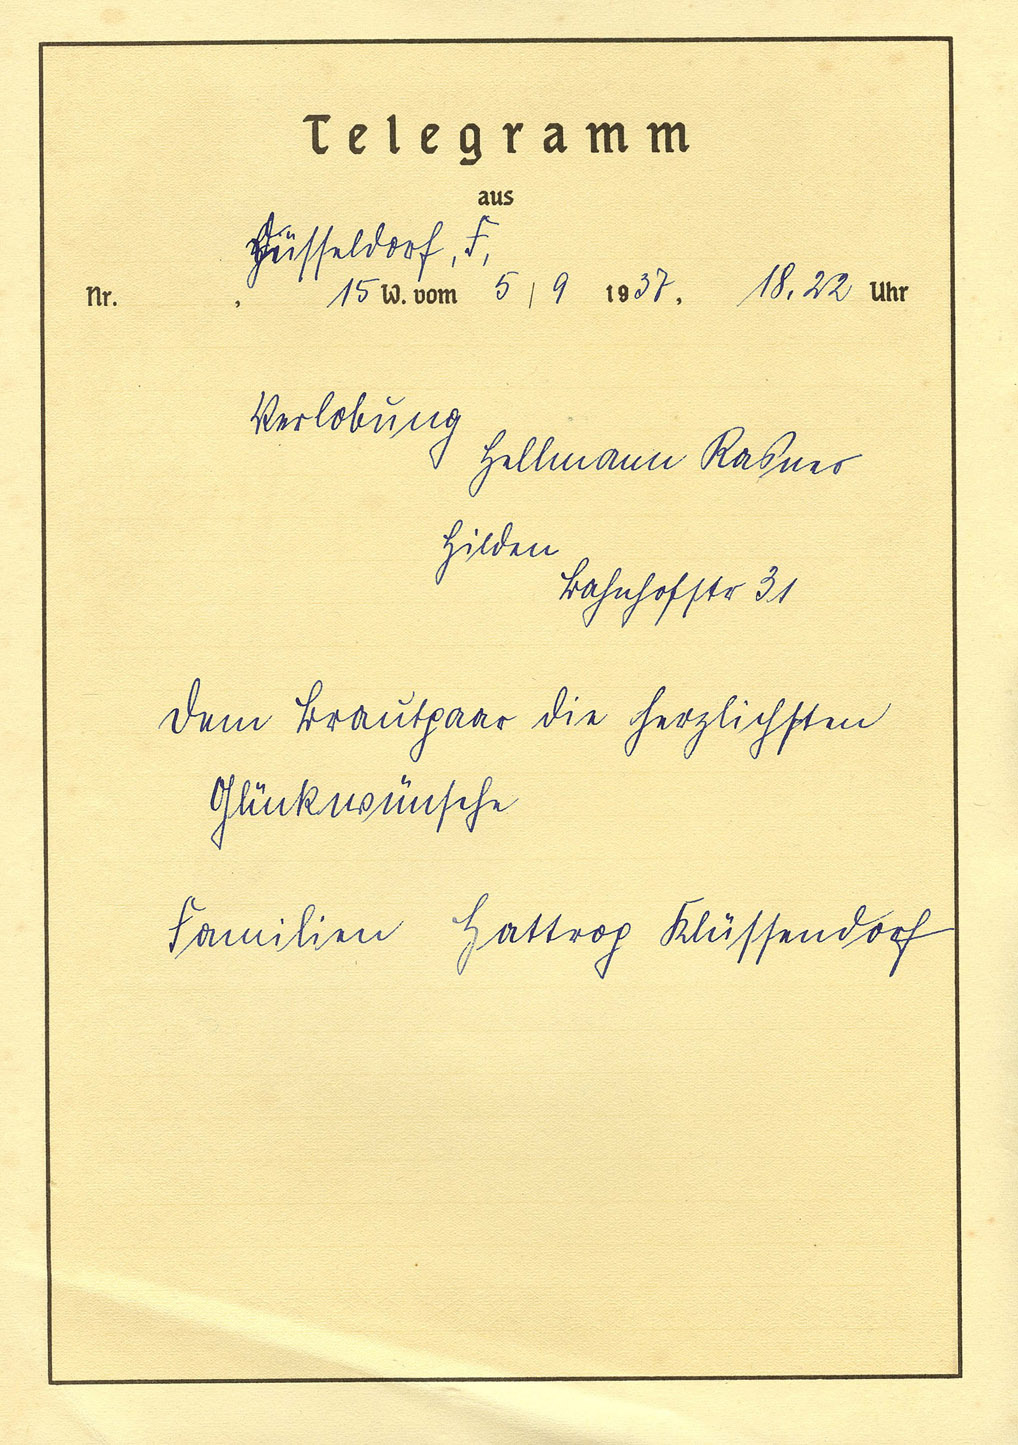 Telegramm
aus
Düsseldorf, F,
Nr. , 15 W. vom 5 / 9 1937, 18.22 Uhr
Verlobung
Hellmann Rasner
Hilden
Bahnhofstr 31
Dem Brautpaar die herzlichsten
Glückwünsche
Familien Hattrop Klüssendorf